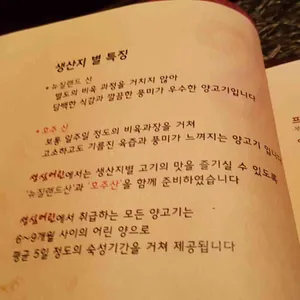 생산지 별 특징
• 뉴질랜드 산
별도의 비육 과정을 거치지 않아
담백한 식감과 깔끔한 풍미가 우수한 양고기입니다
• 호주 산
보통 일주일 정도의 비육과정을 거쳐
고소하고도 기름진 육즙과 풍미가 느껴지는 양고기 입니다
에서는 생산지별 고기의 맛을 즐기실 수 있도록
'뉴질랜드산'과 '호주산'을 함께 준비하였습니다
에서 취급하는 모든 양고기는
6~9개월 사이의 어린 양으로
평균 5일 정도의 숙성기간을 거쳐 제공됩니다